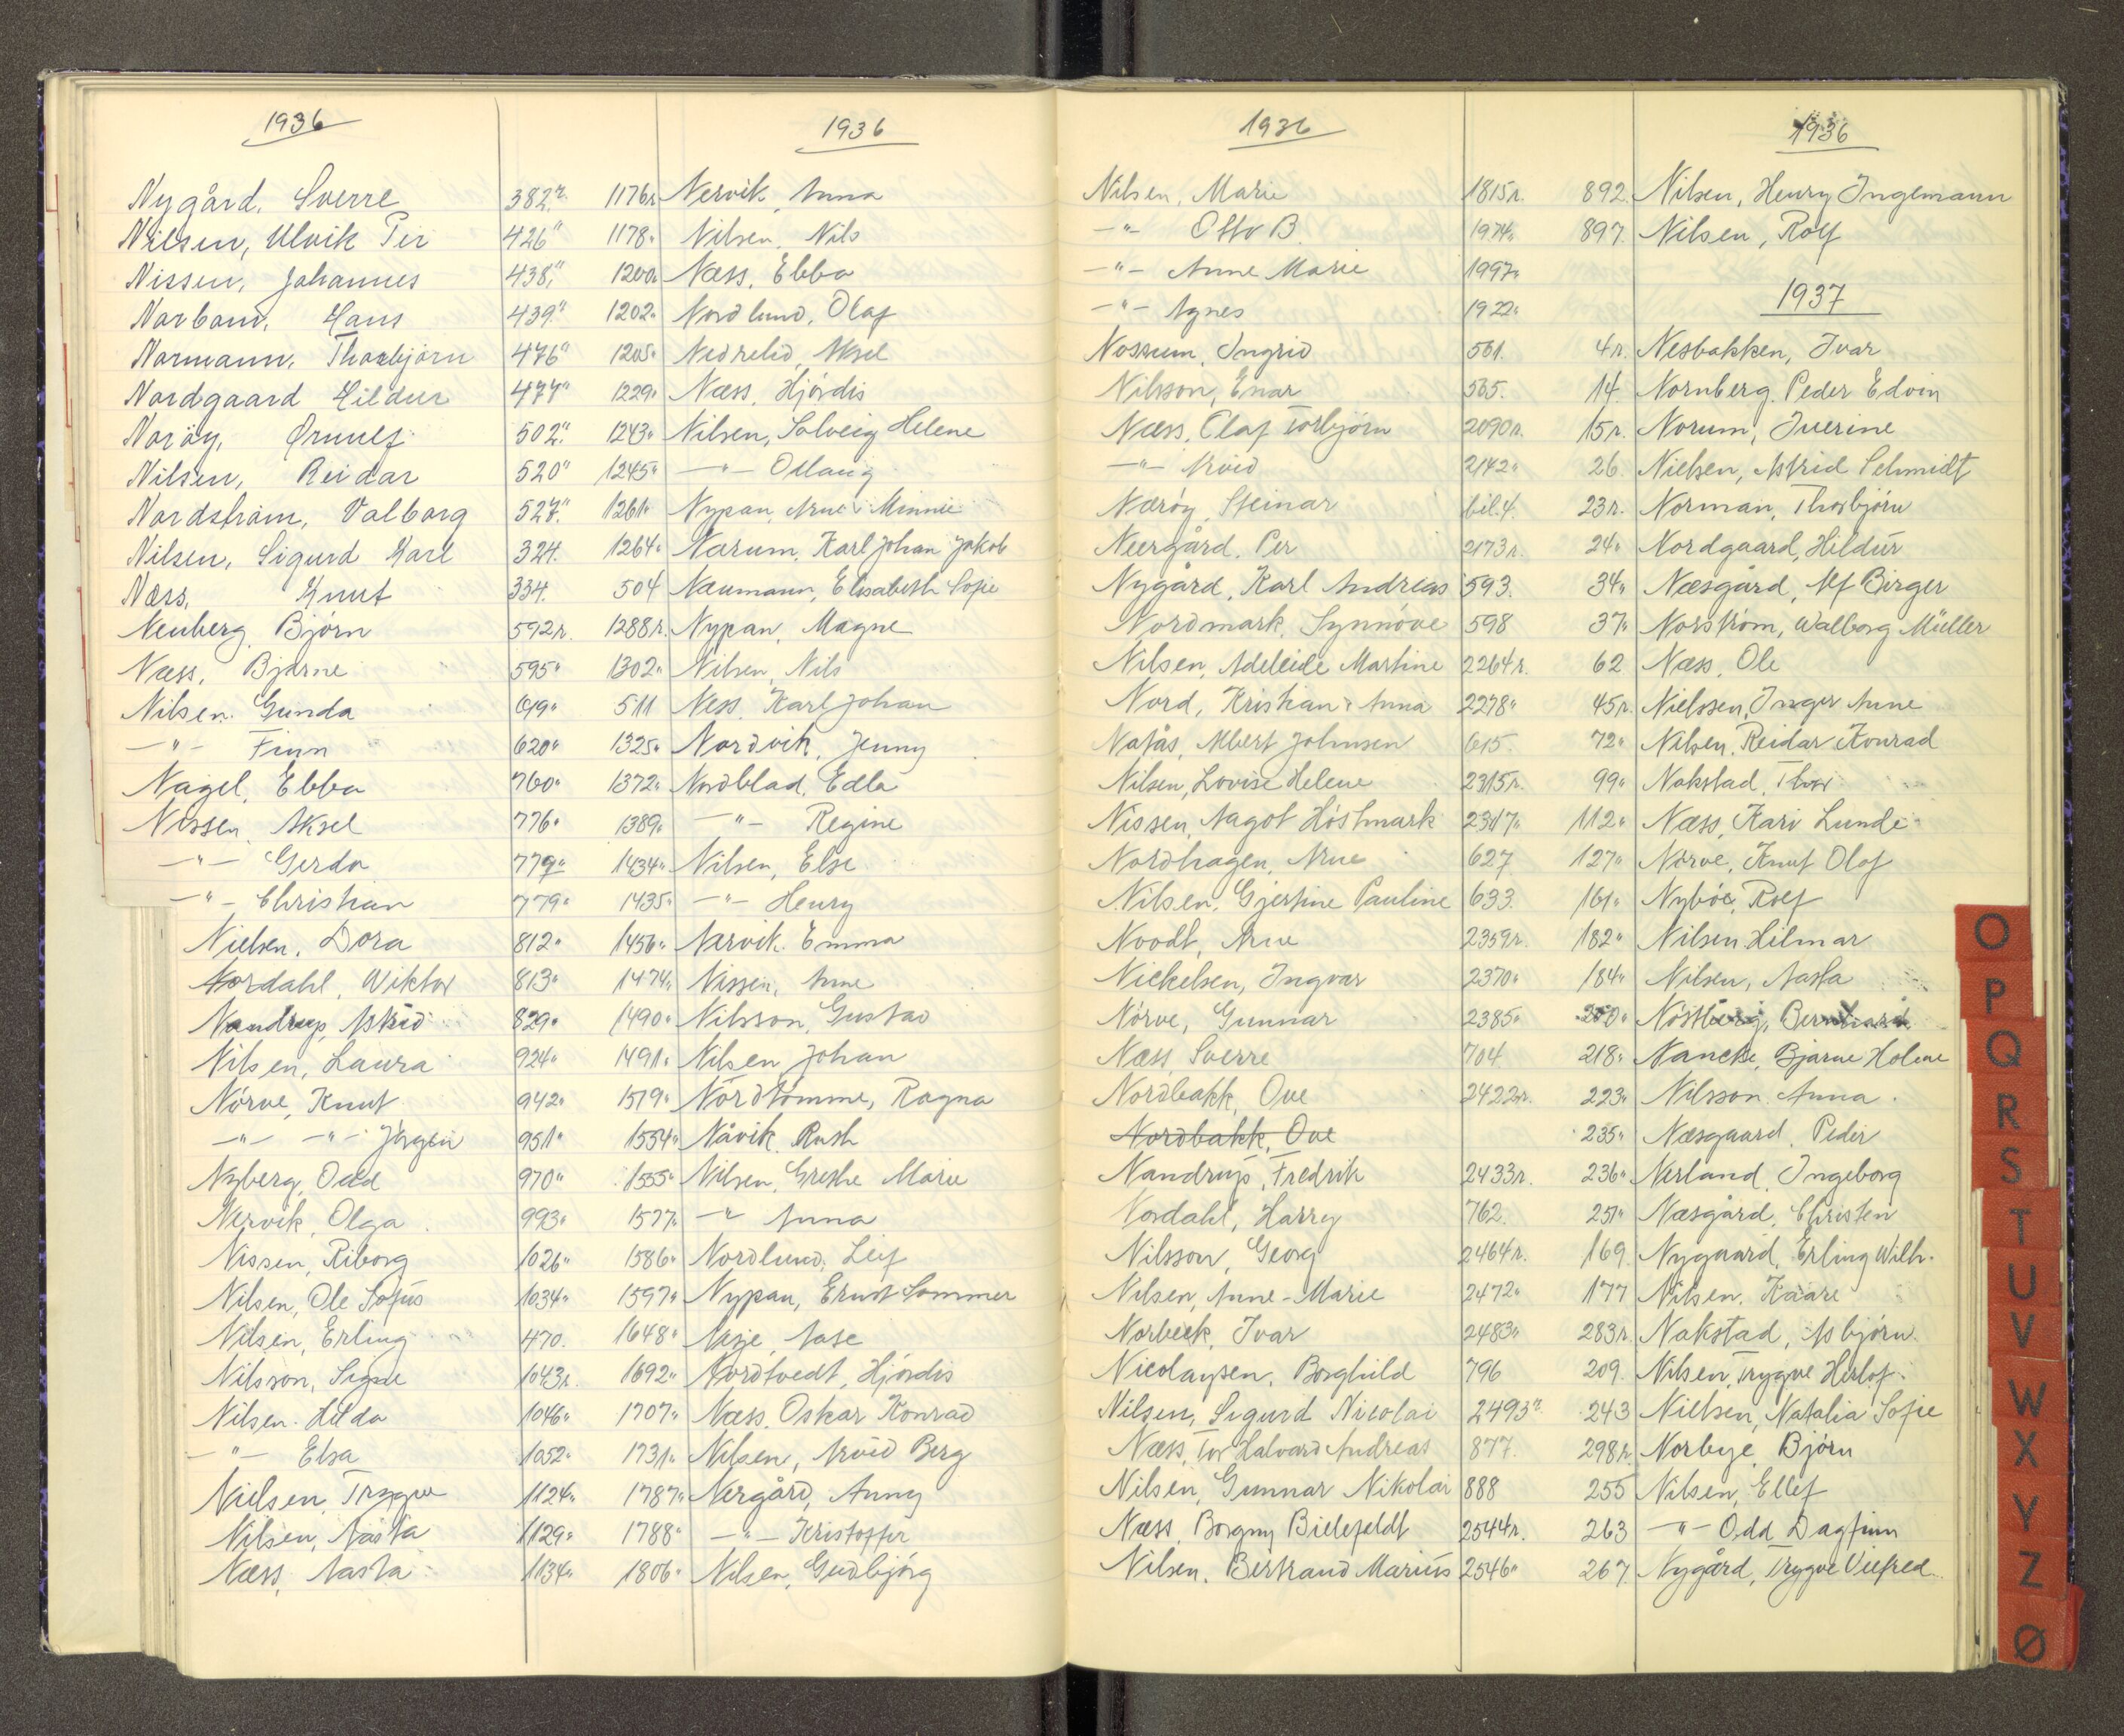 1936
Nygård, Sverre 382 r.
Nilsen, Ulvik Per 426 "
Nissen, Johannes 438 "
Hans 439 "
Normann, Thorbjørn 476 "
Nordgaard Hildur 477 "
Norøy, Ørnulf 502 "
Nilsen, Reidar 520 "
Nordstrøm, Valborg 527 "
Nilsen, Sigurd Karl 324.
Næss, Knut 334.
Neuberg, Bjørn 592 r.
Næss, Bjarne 595 "
Nilsen. Gunda 619 "
—"— Finn 620 "
Nagel, Ebba 760 "
Nissen, Aksel 776 "
—"— Gerda 779 "
—"— Christian 779 "
Nielsen, Dora 812 "
Nordahl, Wiktor 813 "
Nandrup, Astrid 829 "
Nilsen, Laura 924 "
Nørve, Knut 942 "
—"— —"— Jørgen 951 "
Nyberg, Odd 970 "
Nervik, Olga 993 "
Nissen, Riborg 1026 "
Nilsen, Ole Sofus 1034 "
Nilsen, Erling 470.
Nilsson, Signe 1043 r.
Nilsen. Hilda 1046 "
—"— Elsa 1052 "
Nielsen, Trygve 1124 "
Nilsen, Aasta 1129 "
Næss, Aasta 1134 "
1936
1176 r. Nervik, Anna
1178 " Nilsen, Nils
1200 " Næss, Ebba
1202 " Nordlund, Olaf
1205 " Nedrelid, Aksel
1229 " Næss, Hjørdis
1243 " Nilsen, Solveig Helene
1245 " —"— Oddlaug
1261 " Nypan, Arne & Minnie
1264 " Narum, Karl Johan Jakob
504 Naumann, Elisabeth Sofie
1288 r. Nypan, Magne
1302 " Nilsen, Nils
511 Ness, Karl Johan
1325 " Nordvik, Jenny
1372 " Nordblad, Edla
1389 " —"— Regine
1434 " Nilsen, Else
1435 " —"— Henry
1456 " Narvik. Emma
1474 " Nissen, Anne
1490 " Nilsson, Gustav
1491 " Nilsen Johan
1519 " Nordtømme, Ragna
1554 " Nåvik. Ruth
1555 " Nilsen, Grethe Marie
1577 " —"— Anna
1586 " Nordlund, Leif
1597 " Nypan, Ernst Sommer
1648 " Nesje, Aase
1692 " Nordtvedt, Hjørdis
1707 " Næss, Oskar Konrad
1731 " Nilsen, Arvid Berg
1787 " Nergård, Anny
1788 " —"— Kristoffer
1806 " Nilsen, Gudbjørg
1936
Nilsen, Marie 1815 r.
—"— Otto B. 1974 "
—"— Anne Marie 1997 "
—"— Agnes 1922 "
Nossum, Ingrid 561.
Nilsson, Einar 565.
Næss, Olaf Torbjørn 2090 r.
—"— Arvid 2142 "
Nærøy, Steinar bil. 4.
Neergård. Per 2173 r.
Nygård, Karl Andreas 593.
Nordmark, Synnøve 598
Nilsen, Adeleide Martine 2264 r.
Nord, Kristian & Anna 2278 "
Nafås, Albert Johnsen 615.
Nilsen, Lovise Helene 2315 r.
Nissen, Aagot Høstmark 2317 "
Nordhagen, Arne 627
Nilsen, Gjertine Pauline 633.
Noodt, Arne 2359 r.
Nickelsen, Ingvar 2370 "
Nørve, Gunnar 2385 "
Næss, Sverre 704.
Nordbakk, Ove 2422 r.
Nordbakk, Ove
Nandrup, Fredrik 2433 r.
Nordahl, Harry 762.
Nilsson, Georg 2464 r.
Nilsen, Anne-Marie 2472 "
Norbeck, Ivar 2483 "
Nicolaysen, Borghild 796
Nilsen, Sigurd Nicolai 2493 r.
Næss, Tor Halvard Andreas 877.
Nilsen, Gunnar Nikolai 888
Næss, Borgny Bielefeldt 2544 r.
Nilsen, Bertrand Marius 2546 "
1936
892. Nilsen, Henry Ingemann
897. Nilsen, Rolf
1937
4 r. Nesbakken, Ivar
14. Nornberg, Peder Edvin
15 r. Norum, Iverine
26 Nielsen, Astrid Schmidt
23 r. Norman, Thorbjørn
24 " Nordgaard, Hildur
34 " Næsgård, Alf Birger
37 " Norstrøm, Walborg Müller
62 Næss, Ole
45 r. Nielssen, Inger Anne
72 " Nilsen, Reidar Konrad
99 " Nakstad, Thor
112 " Næss, Kari Lunde
127 " Nørve, Knut Olaf
161 " Nybøe, Rolf
182 " Nilsen Hilmar
184 " Nilsen, Aasta
Nøstberg, Bernhard
218 " Nancke, Bjarne Holme
223 " Nilsson Anna
235 " Næsgaard, Peder
236 " Nerland, Ingeborg
251 " Næsgård, Christen
169. Nygaard, Erling Wilh.
177 Nilsen, Kaare
283 r. Nakstad, Asbjørn
209. Nilsen, Trygve Herlof
243 Nielsen, Natalia Sofie
298 r. Norbye, Bjørn
255 Nilsen, Ellef
263 —"— Odd Dagfinn
267. Nygård, Trygve Vilfred
O
P
Q
R
S
T
U
V
W
X
Y
Z
Ø